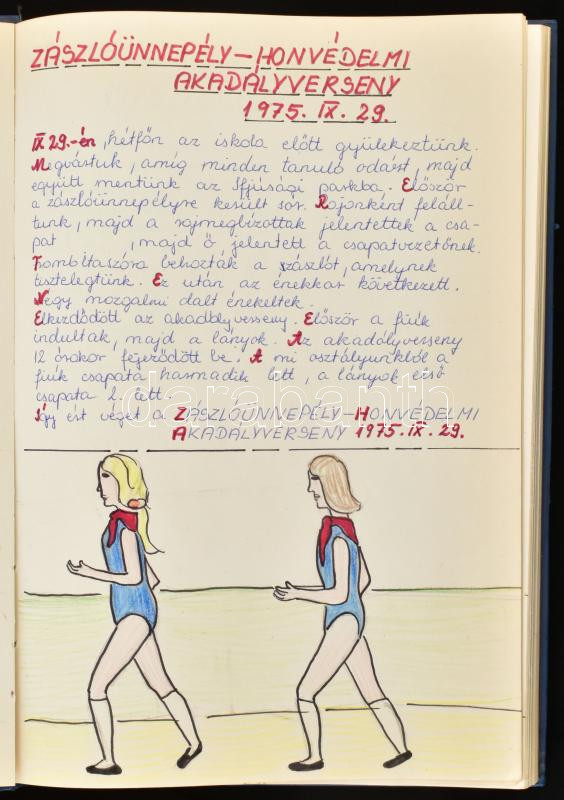 ZÁSZLÓÜNNEPÉLY – HONVÉDELMI
AKADÁLYVERSENY
1975. IX. 29.
IX 29.-én, hétfőn az iskola előtt gyülekeztünk.
Megvártuk, amíg minden tanuló odaért, majd
együtt mentünk az Ifjúsági parkba. Először
a zászlóünnepélyre került sor. Rajonként feláll-
tunk, majd a rajmegbízottak jelentettek a csa-
pat , majd ő jelentett a csapatvezetőnek.
Trombitaszóra behozták a zászlót, amelynek
tisztelegtünk. Ez után az énekkar következett.
Négy mozgalmi dalt énekeltek.
Elkezdődött az akadályverseny. Először a fiúk
indultak, majd a lányok. Az akadályverseny
12 órakor fejeződött be. A mi osztályunkból a
fiúk csapata harmadik lett, a lányok első
csapata 2. lett.
Így ért véget a ZÁSZLÓÜNNEPÉLY – HONVÉDELMI
AKADÁLYVERSENY 1975. IX. 29.
darabanth